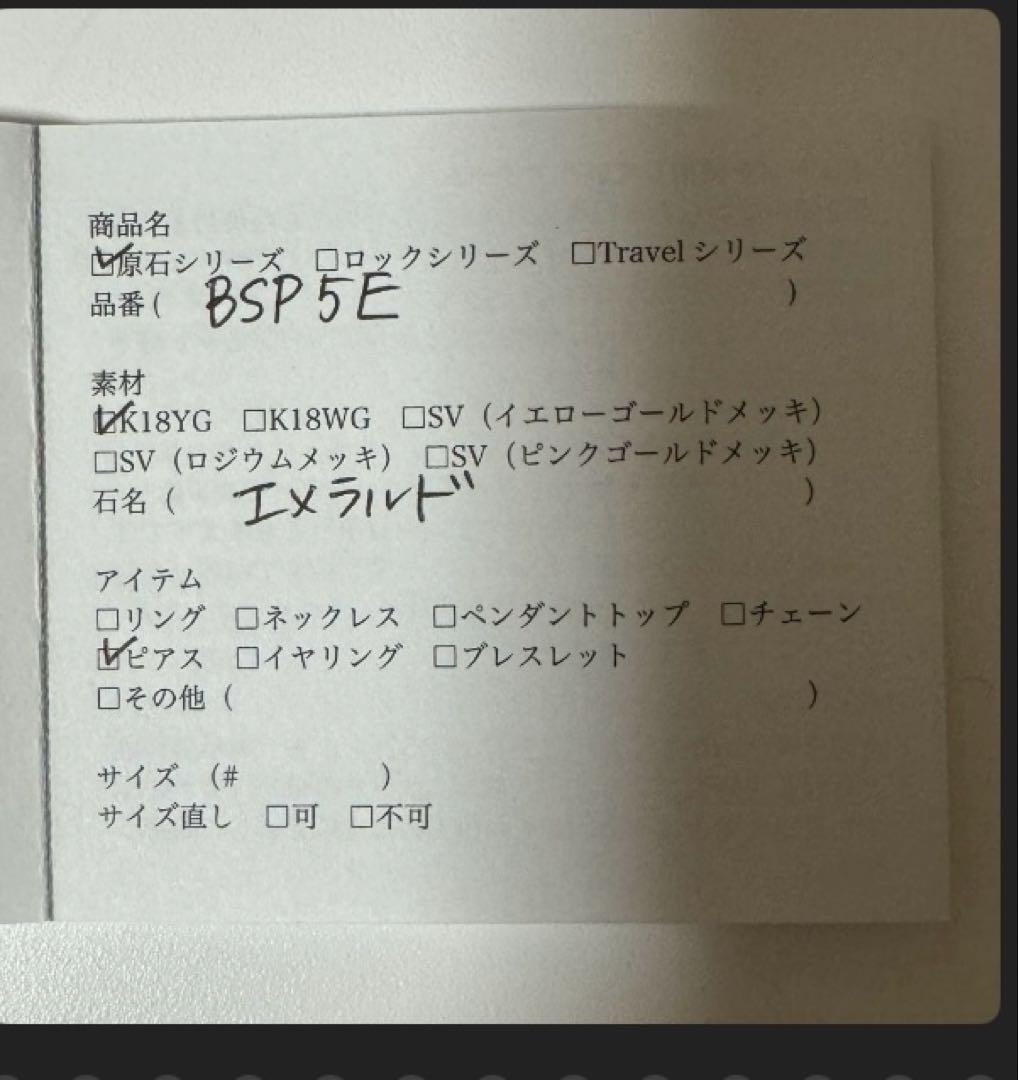 商品名
☑原石シリーズ □ロックシリーズ □Travel シリーズ
品番( BSP5E )
素材
☑K18YG □K18WG □SV（イエローゴールドメッキ）
□SV（ロジウムメッキ） □SV（ピンクゴールドメッキ）
石名（ エメラルド ）
アイテム
□リング □ネックレス □ペンダントトップ □チェーン
☑ピアス □イヤリング □ブレスレット
□その他（ ）
サイズ （# ）
サイズ直し □可 □不可